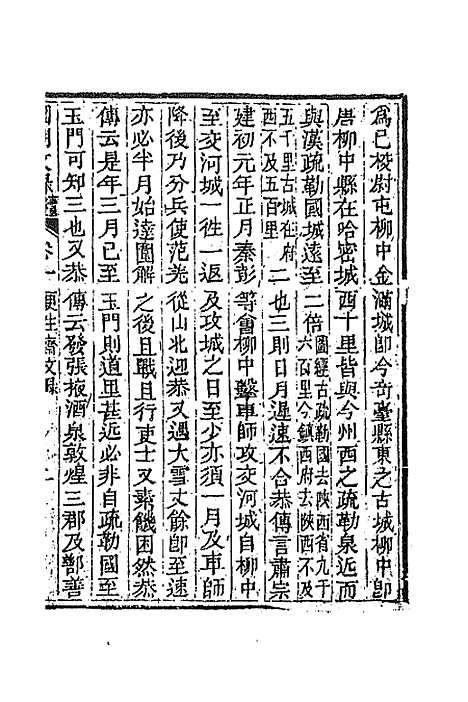 爲已校尉屯柳中金滿城卽今奇臺縣東之古城柳中卽
唐柳中縣在哈密城西十里皆與今州西之疏勒泉近而
與漢疏勒國城遠至二倍圖經古疏勒國去陝西省九千
六百里今鎮西府去陝西不及
五千里古城在府
西不及五百里二也三則日月遲速不合恭傳言肅宗
建初元年正月秦彭等會柳中擊車師攻交河城自柳中
至交河城一徃一返及攻城之日至少亦須一月及車師
降後乃分兵使范羌從山北迎恭又遇大雪丈餘卽至速
亦必半月始達圍解之後且戰且行吏士又素饑困然恭
傳云是年三月已至玉門則道里甚近必非自疏勒國至
玉門可知三也又恭傳云發張掖酒泉敦煌三郡及鄯善
卷一 更生齋文